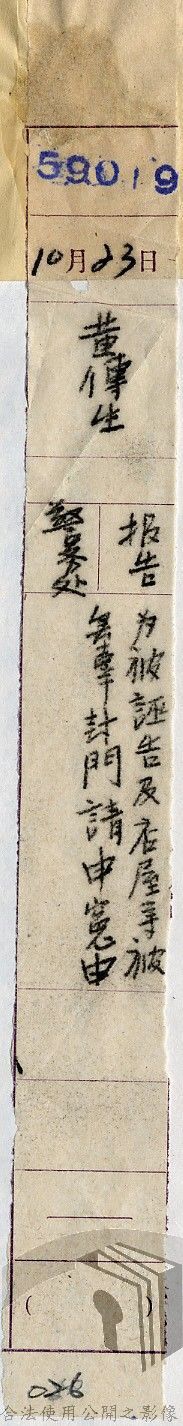 59019
10月23日
黄傳生
報告
警务处
為被誣告及店屋等被
無辜封門請申冤由
(　)
026
合法使用公開之影像